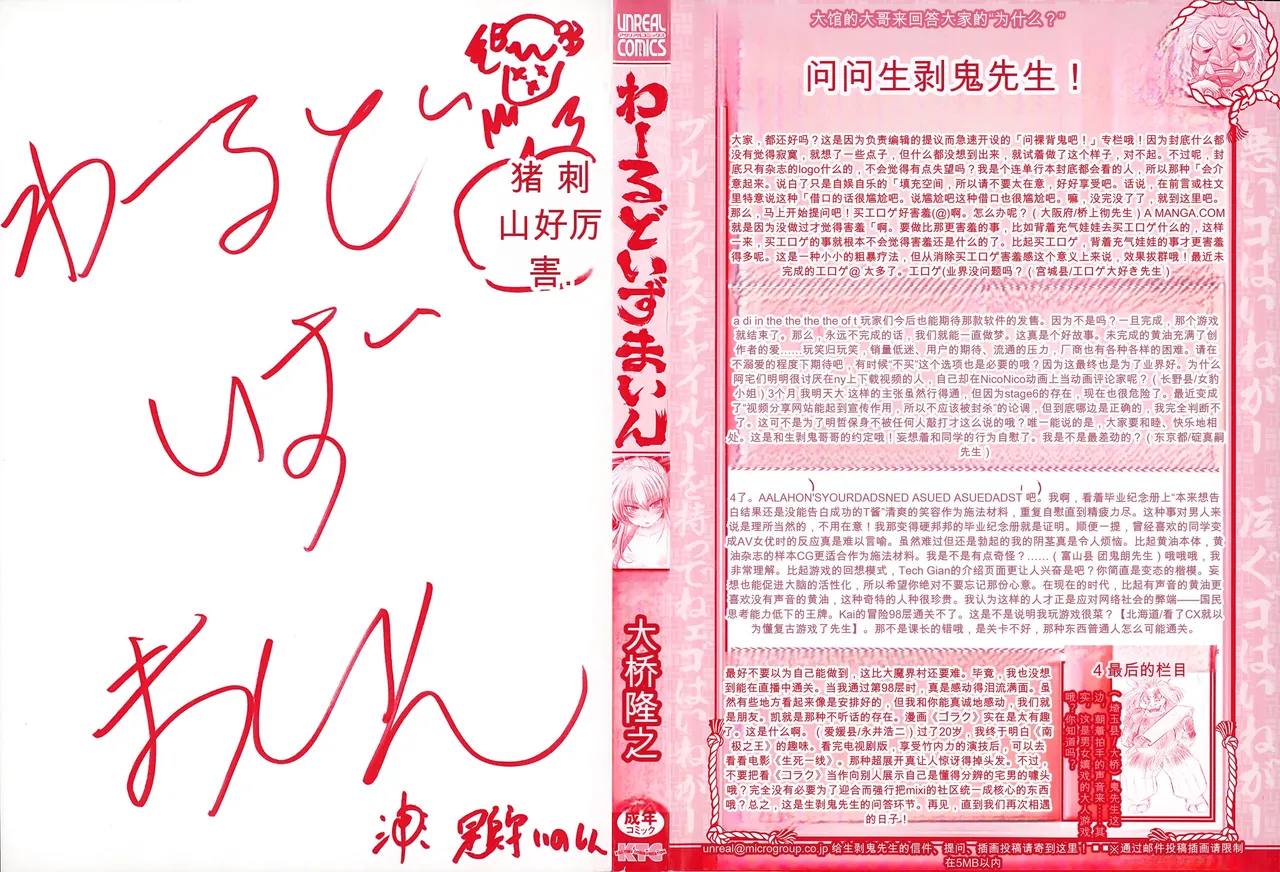 わーるどいず
まいん
猪 刺
山好厉
害..
UNREAL
COMICS
わーるどいずまいん
大桥隆之
成年
コミック
KTC
大馆的大哥来回答大家的“为什么？”
问问生剥鬼先生！
大家，都还好吗？这是因为负责编辑的提议而急速开设的「问裸背鬼吧！」专栏哦！因为封底什么都
没有觉得寂寞，就想了一些点子，但什么都没想到出来，就试着做了这个样子，对不起。不过呢，封
底只有杂志的logo什么的，不会觉得有点失望吗？我是个连单行本封底都会看的人，所以那种「会介
意起来。说白了只是自娱自乐的「填充空间，所以请不要太在意，好好享受吧。话说，在前言或柱文
里特意说这种「借口的话很尴尬吧。说尴尬吧这种借口也很尴尬吧。嘛，没完没了了，就到这里吧。
那么，马上开始提问吧！买工口ゲ好害羞(@)啊。怎么办呢？（大阪府/桥上彻先生）A MANGA.COM
就是因为没做过才觉得害羞「啊。要做比那更害羞的事，比如背着充气娃娃去买工口ゲ什么的，这样
一来，买工口ゲ的事就根本不会觉得害羞还是什么的了。比起买工口ゲ，背着充气娃娃的事才更害羞
得多呢。这是一种小小的粗暴疗法，但从消除买工口ゲ害羞感这个意义上来说，效果拔群哦！最近未
完成的工口ゲ@ 太多了。工口ゲ(业界没问题吗？（宫城县/工口ゲ大好き先生）
a di in the the the the of t 玩家们今后也能期待那款软件的发售。因为不是吗？一旦完成，那个游戏
就结束了。那么，永远不完成的话，我们就能一直做梦。这真是个好故事。未完成的黄油充满了创
作者的爱……玩笑归玩笑，销量低迷、用户的期待、流通的压力，厂商也有各种各样的困难。请在
不溺爱的程度下期待吧，有时候“不买”这个选项也是必要的哦？因为这最终也是为了业界好。为什么
阿宅们明明很讨厌在ny上下载视频的人，自己却在NicoNico动画上当动画评论家呢？（长野县/女豹
小姐）3个月 我明天大 这样的主张虽然行得通，但因为stage6的存在，现在也很危险了。最近变成
了“视频分享网站能起到宣传作用，所以不应该被封杀”的论调，但到底哪边是正确的，我完全判断不
了。这可不是为了明哲保身不被任何人敲打才这么说的哦？唯一能说的是，大家要和睦、快乐地相
处。这是和生剥鬼哥哥的约定哦！妄想着和同学的行为自慰了。我是不是最差劲的？（东京都/碇真嗣
先生）
4了。AALAHON'SYOURDADSNED ASUED ASUEDADST 吧。我啊，看着毕业纪念册上“本来想告
白结果还是没能告白成功的T酱”清爽的笑容作为施法材料，重复自慰直到精疲力尽。这种事对男人来
说是理所当然的，不用在意！我那变得硬邦邦的毕业纪念册就是证明。顺便一提，曾经喜欢的同学变
成AV女优时的反应真是难以言喻。虽然难过但还是勃起的我的阴茎真是令人烦恼。比起黄油本体，黄
油杂志的样本CG更适合作为施法材料。我是不是有点奇怪？……（富山县 团鬼朗先生）哦哦哦，我
非常理解。比起游戏的回想模式，Tech Gian的介绍页面更让人兴奋是吧？你简直是变态的楷模。妄
想也能促进大脑的活性化，所以希望你绝对不要忘记那份心意。在现在的时代，比起有声音的黄油更
喜欢没有声音的黄油，这种奇特的人种很珍贵。我认为这样的人才正是应对网络社会的弊端——国民
思考能力低下的王牌。Kai的冒险98层通关不了。这是不是说明我玩游戏很菜？【北海道/看了CX就以
为懂复古游戏了先生】。那不是课长的错哦，是关卡不好，那种东西普通人怎么可能通关。
最好不要以为自己能做到，这比大魔界村还要难。毕竟，我也没想
到能在直播中通关。当我通过第98层时，真是感动得泪流满面。虽
然有些地方看起来像是安排好的，但我和你能真诚地感动，我们就
是朋友。凯就是那种不听话的存在。漫画《ゴラク》实在是太有趣
了。这是什么啊。（爱媛县/永井浩二）过了20岁，我终于明白《南
极之王》的趣味。看完电视剧版，享受竹内力的演技后，可以去
看看电影《生死一线》。那种超展开真让人惊讶得掉头发。不过，
不要把看《コラク》当作向别人展示自己是懂得分辨的宅男的噱头
哦？完全没有必要为了迎合而强行把mixi的社区统一成核心的东西
哦？总之，这是生剥鬼先生的问答环节。再见，直到我们再次相遇
的日子！
4 最后的栏目
（埼玉县/大桥）鬼先生这
边，朝着拍手的声音来…其
实，这是男女嬉戏的大人游戏
哦？你知道吗？
unreal@microgroup.co.jp 给生剥鬼先生的信件、提问、插画投稿请寄到这里！※通过邮件投稿插画请限制
在5MB以内
ブルーライスチャイルドを持ってねェゴはいねがー
悪いゴはいねがー 泣ぐゴはいねがー